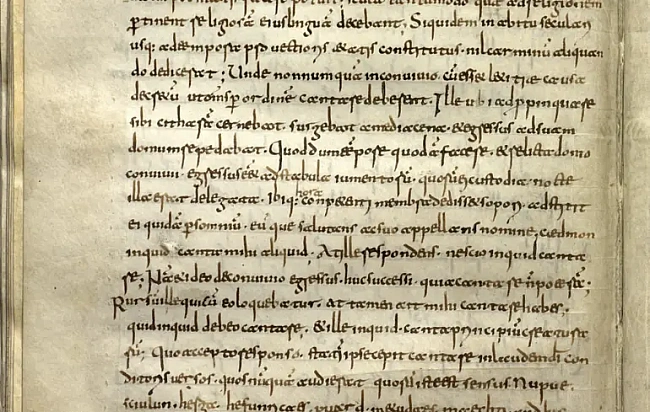 ptinent religiosā eius linguā decebant. Siquidem in abitu seculari
usq; ad tempora prouectioris aetatis constitutus. nil carminū aliquan
do dedicerat; Unde nonnumquā in conuiuio. cū esset letitiae causa
decretū. ut omnes per ordinē cantare deberent. Ille ubi adppinquare
sibi citharā cernebat. surgebat a media cena. & egressus ad suam
domum repedabat. Quod dum tempore quodā faceret. & relicta domo
conuiuii. egressus esset ad stabula iumentorū. quorū ei custodia nocte
illa erat delegata. ibiq; hora conpetenti membra dedisset sopori. adstitit
ei quidā per somniū. eūque salutans ac suo appellans nomine. caedmon
inquid canta mihi aliquid. At ille respondens. nescio inquid canta
re; Nā & ideo de conuiuio egressus. huc successi. quia cantare n̄ poterā;
Rursū ille qui cū eo loquebatur. attamen ait mihi cantare habes.
quid inquid debeo cantare. & ille inquid. canta principiū creatura
rū; Quo accepto responso. statī ipse cepit cantare in laudem dei con
ditoris uersos. quos nūquā audierat quorū iste est sensus. Nu pue
sciulun. herga hefunricaes uard. metudaes maecti